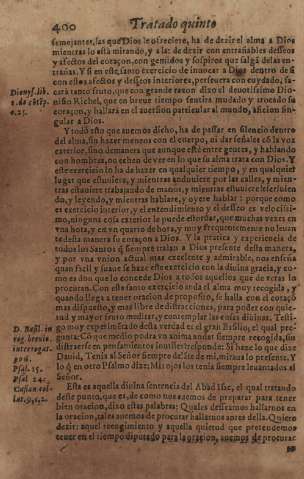 400 Tratado quinto
semejantes, las que Dios le ofreciere, ha de dezir el alma a Dios
mientras lo está mirando, y a la: de dezir con entrañables desseos
y afectos del coraçon, con gemidos y sospiros que salgã de las en-
trañas. Y si en este, santo exercicio de inuocar a Dios dentro de sí
con estos afectos y desseos interiores, perseuera con cuydado, sa-
cará tanto fruto, que con grande razon dixo el deuotissimo Dio-
nisio Richel, que en breue tiempo sentirá mudado y trocado su
coraçon, y hallará en el auersion particular al mundo, aficion sin-
gular a Dios.
Dionys. lib.
1. de cõtẽp.
c. 25.
Y todo esto que auemos dicho, ha de passar en silencio dentro
del alma, sin hazer meneos con el cuerpo, ni dar señales cõ la voz
exterior, sino demanera que aunque esté entre gentes, y hablando
con hombres, no echen de ver en lo que su alma trata con Dios. Y
este exercicio lo ha de hazer en qualquier tiempo, y en qualquier
lugar que estuuiere, y mientras anduuiere por las calles, y mien-
tras estuuiere trabajando de manos, y mientras estuuiere
do, y leyendo, y mientras hablare, y oyere hablar: porque como
es exercicio interior, y el entendimiento y el desseo es velocissi-
mo, ninguna cosa exterior le puede estoruar, que muchas vezes en
vna hora, y en vn quarto de hora, y muy frequentemente no leuan
te desta manera su coraçon a Dios. Y la practica y experiencia de
todos los Santos q̃ siempre traían a Dios presente desta manera,
y por vna vnion actual mas excelente y admirable, nos enseña
quan facil y suaue se haze este exercicio con la diuina gracia, y co-
mo es don que lo concede Dios a todos aquellos que de veras lo
procuran. Con este santo exercicio anda el alma muy recogida, y
quando llega a tener oracion de proposito, se halla con el coraçõ
mas dispuesto, y está libre de distracciones, para poder con quie-
tud y mayor fruto meditar, y contemplar las cosas diuinas. Testi-
go muy experimentado desta verdad es el gran Basilio, el qual pre-
gunta: Con que medio podra vn anima andar siempre recogida, sin
distraerse en pensamientos inutiles? responde: Si haze lo que dize
Dauid, Tenia al Señor siempre delãte de mi, miraua lo presente. Y
lo q̃ en otro Psalmo dize: Mis ojos los tenia siempre leuantados al
Señor.
D. Basil. in
reg. breuio.
interrogat.
Psal. 15.
Psal. 24.
Esta es aquella diuina sentencia del Abad Isac, el qual tratando
deste punto, que es, de como nos auemos de preparar para tener
bien oracion, dixo estas palabras: Quales desseamos hallarnos en
la oracion, tales auemos de procurar hallarnos antes della. Quiero
dezir: aquel recogimiento y aquella quietud que pretendemos
tener en el tiempo diputado para la oracion, auemos de procurar